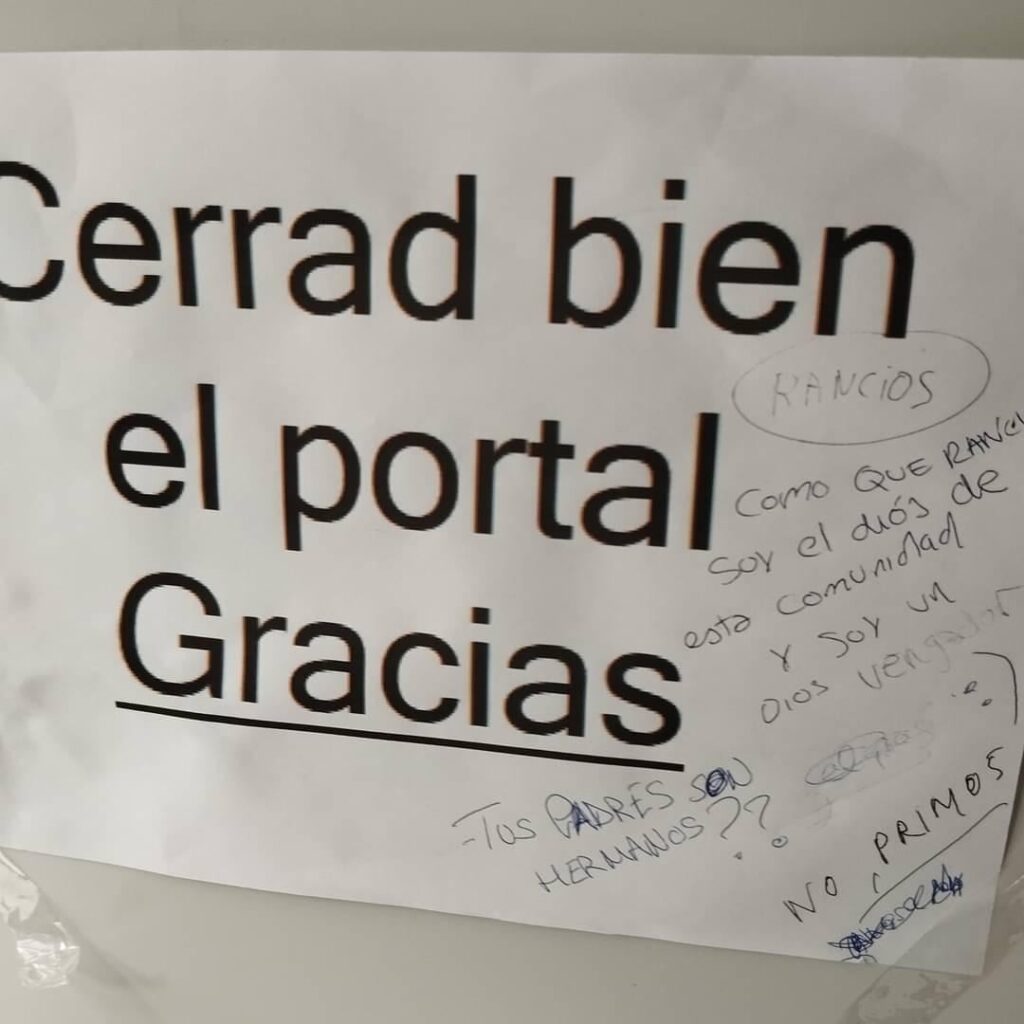 Cerrad bien
el portal
Gracias
RANCIOS
COMO QUE RANCI
SOY el diós de
esta comunidad
Y SOY UN
DIOS vengador
-TUS PADRES SON
HERMANOS??
NO, PRIMOS